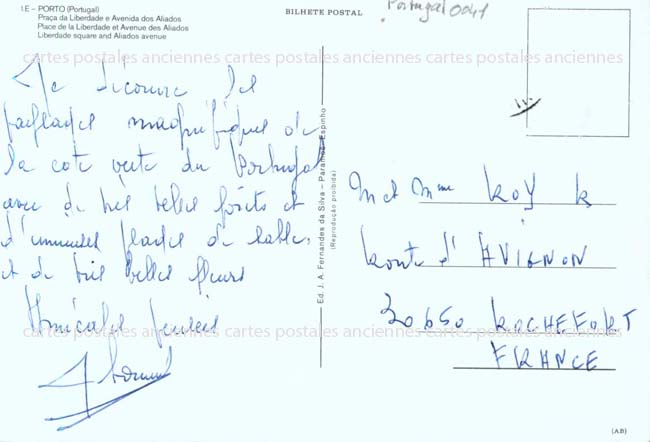 I.E – PORTO (Portugal)
Praça da Liberdade e Avenida dos Aliados
Place de la Liberdade et Avenue des Aliados
Liberdade square and Aliados avenue
BILHETE POSTAL
Portugal 0041
cartes postales anciennes cartes postales anciennes cartes postales anciennes
Je découvre des
paysages magnifiques de
la cote verte du Portugal
avec de très belles forêts et
d'immenses plages de sable,
et de très belles fleurs
Amicales pensées
cartes postales anciennes cartes postales anciennes cartes postales anciennes
cartes postales anciennes cartes postales anciennes cartes postales anciennes
Ed. J. A. Fernandes da Silva – Paramos-Espinho
(Reprodução proibida)
M et Mme ROY R
Route d'AVIGNON
30650 ROCHEFORT
FRANCE
(AB)